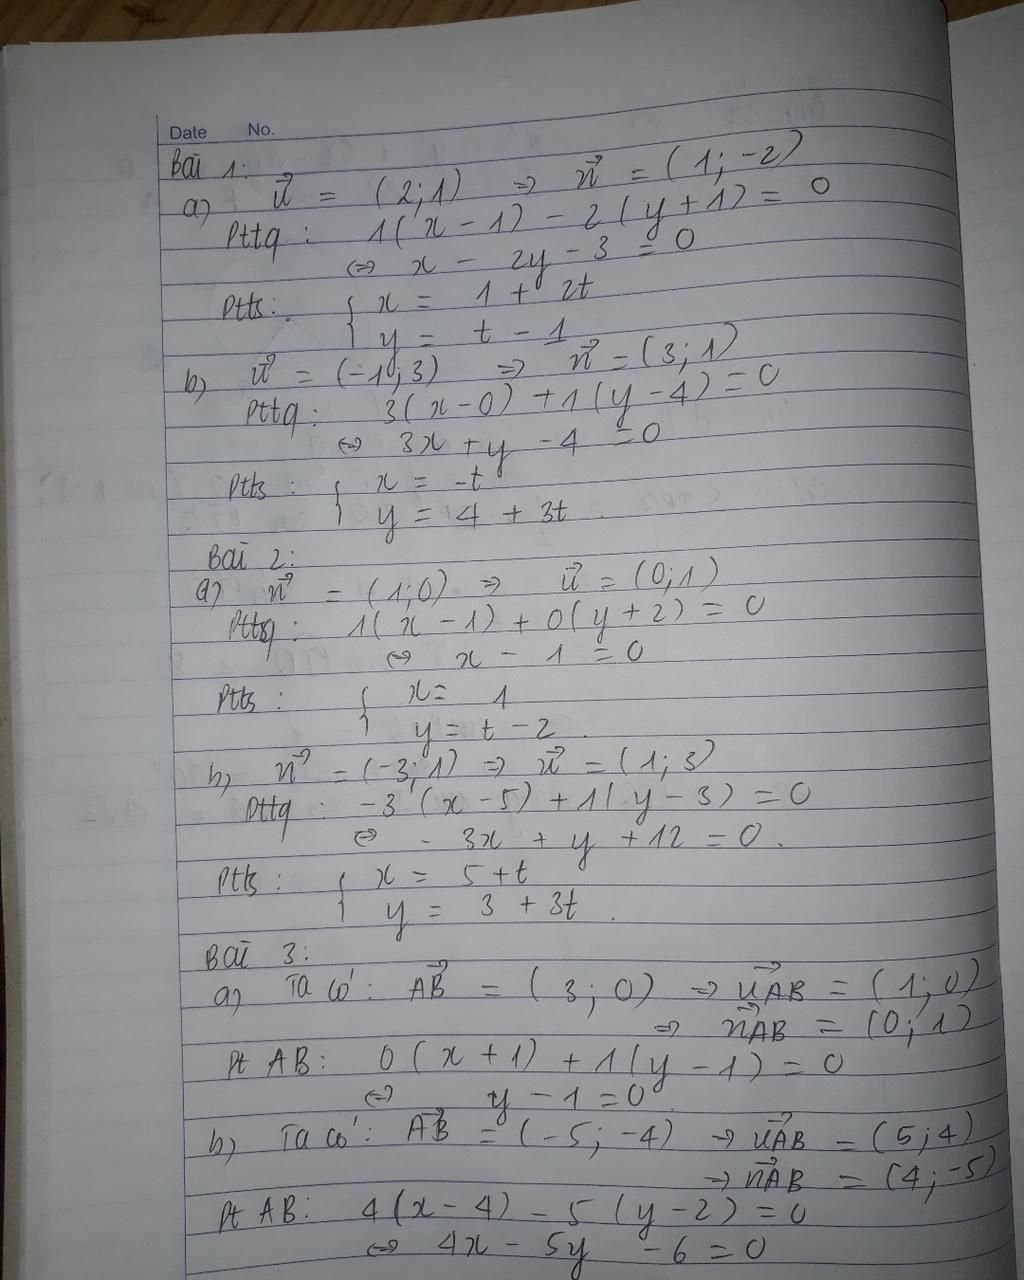 Date No.
Bài 1:
a) u⃗ = (2;1) ⇒ n⃗ = (1;-2)
Pttq: 1(x-1) - 2(y+1) = 0
⇔ x - 2y - 3 = 0
Ptts: { x = 1 + 2t
y = t - 1
b) u⃗ = (-1;3) ⇒ n⃗ = (3;1)
Pttq: 3(x-0) + 1(y-4) = 0
⇔ 3x + y - 4 = 0
Ptts: { x = -t
y = 4 + 3t
Bài 2:
a) n⃗ = (1;0) ⇒ u⃗ = (0;1)
Pttq: 1(x-1) + 0(y+2) = 0
⇔ x - 1 = 0
Ptts: { x = 1
y = t - 2.
b) n⃗ = (-3;1) ⇒ u⃗ = (1;3)
Pttq: -3(x-5) + 1(y-3) = 0
⇔ -3x + y + 12 = 0.
Ptts: { x = 5 + t
y = 3 + 3t.
Bài 3:
a) Ta có: AB⃗ = (3;0) → u⃗AB = (1;0)
⇒ n⃗AB = (0;1)
Pt AB: 0(x+1) + 1(y-1) = 0
⇔ y - 1 = 0.
b) Ta có: AB⃗ = (-5;-4) → u⃗AB = (5;4)
→ n⃗AB = (4;-5)
Pt AB: 4(x-4) - 5(y-2) = 0
⇔ 4x - 5y - 6 = 0